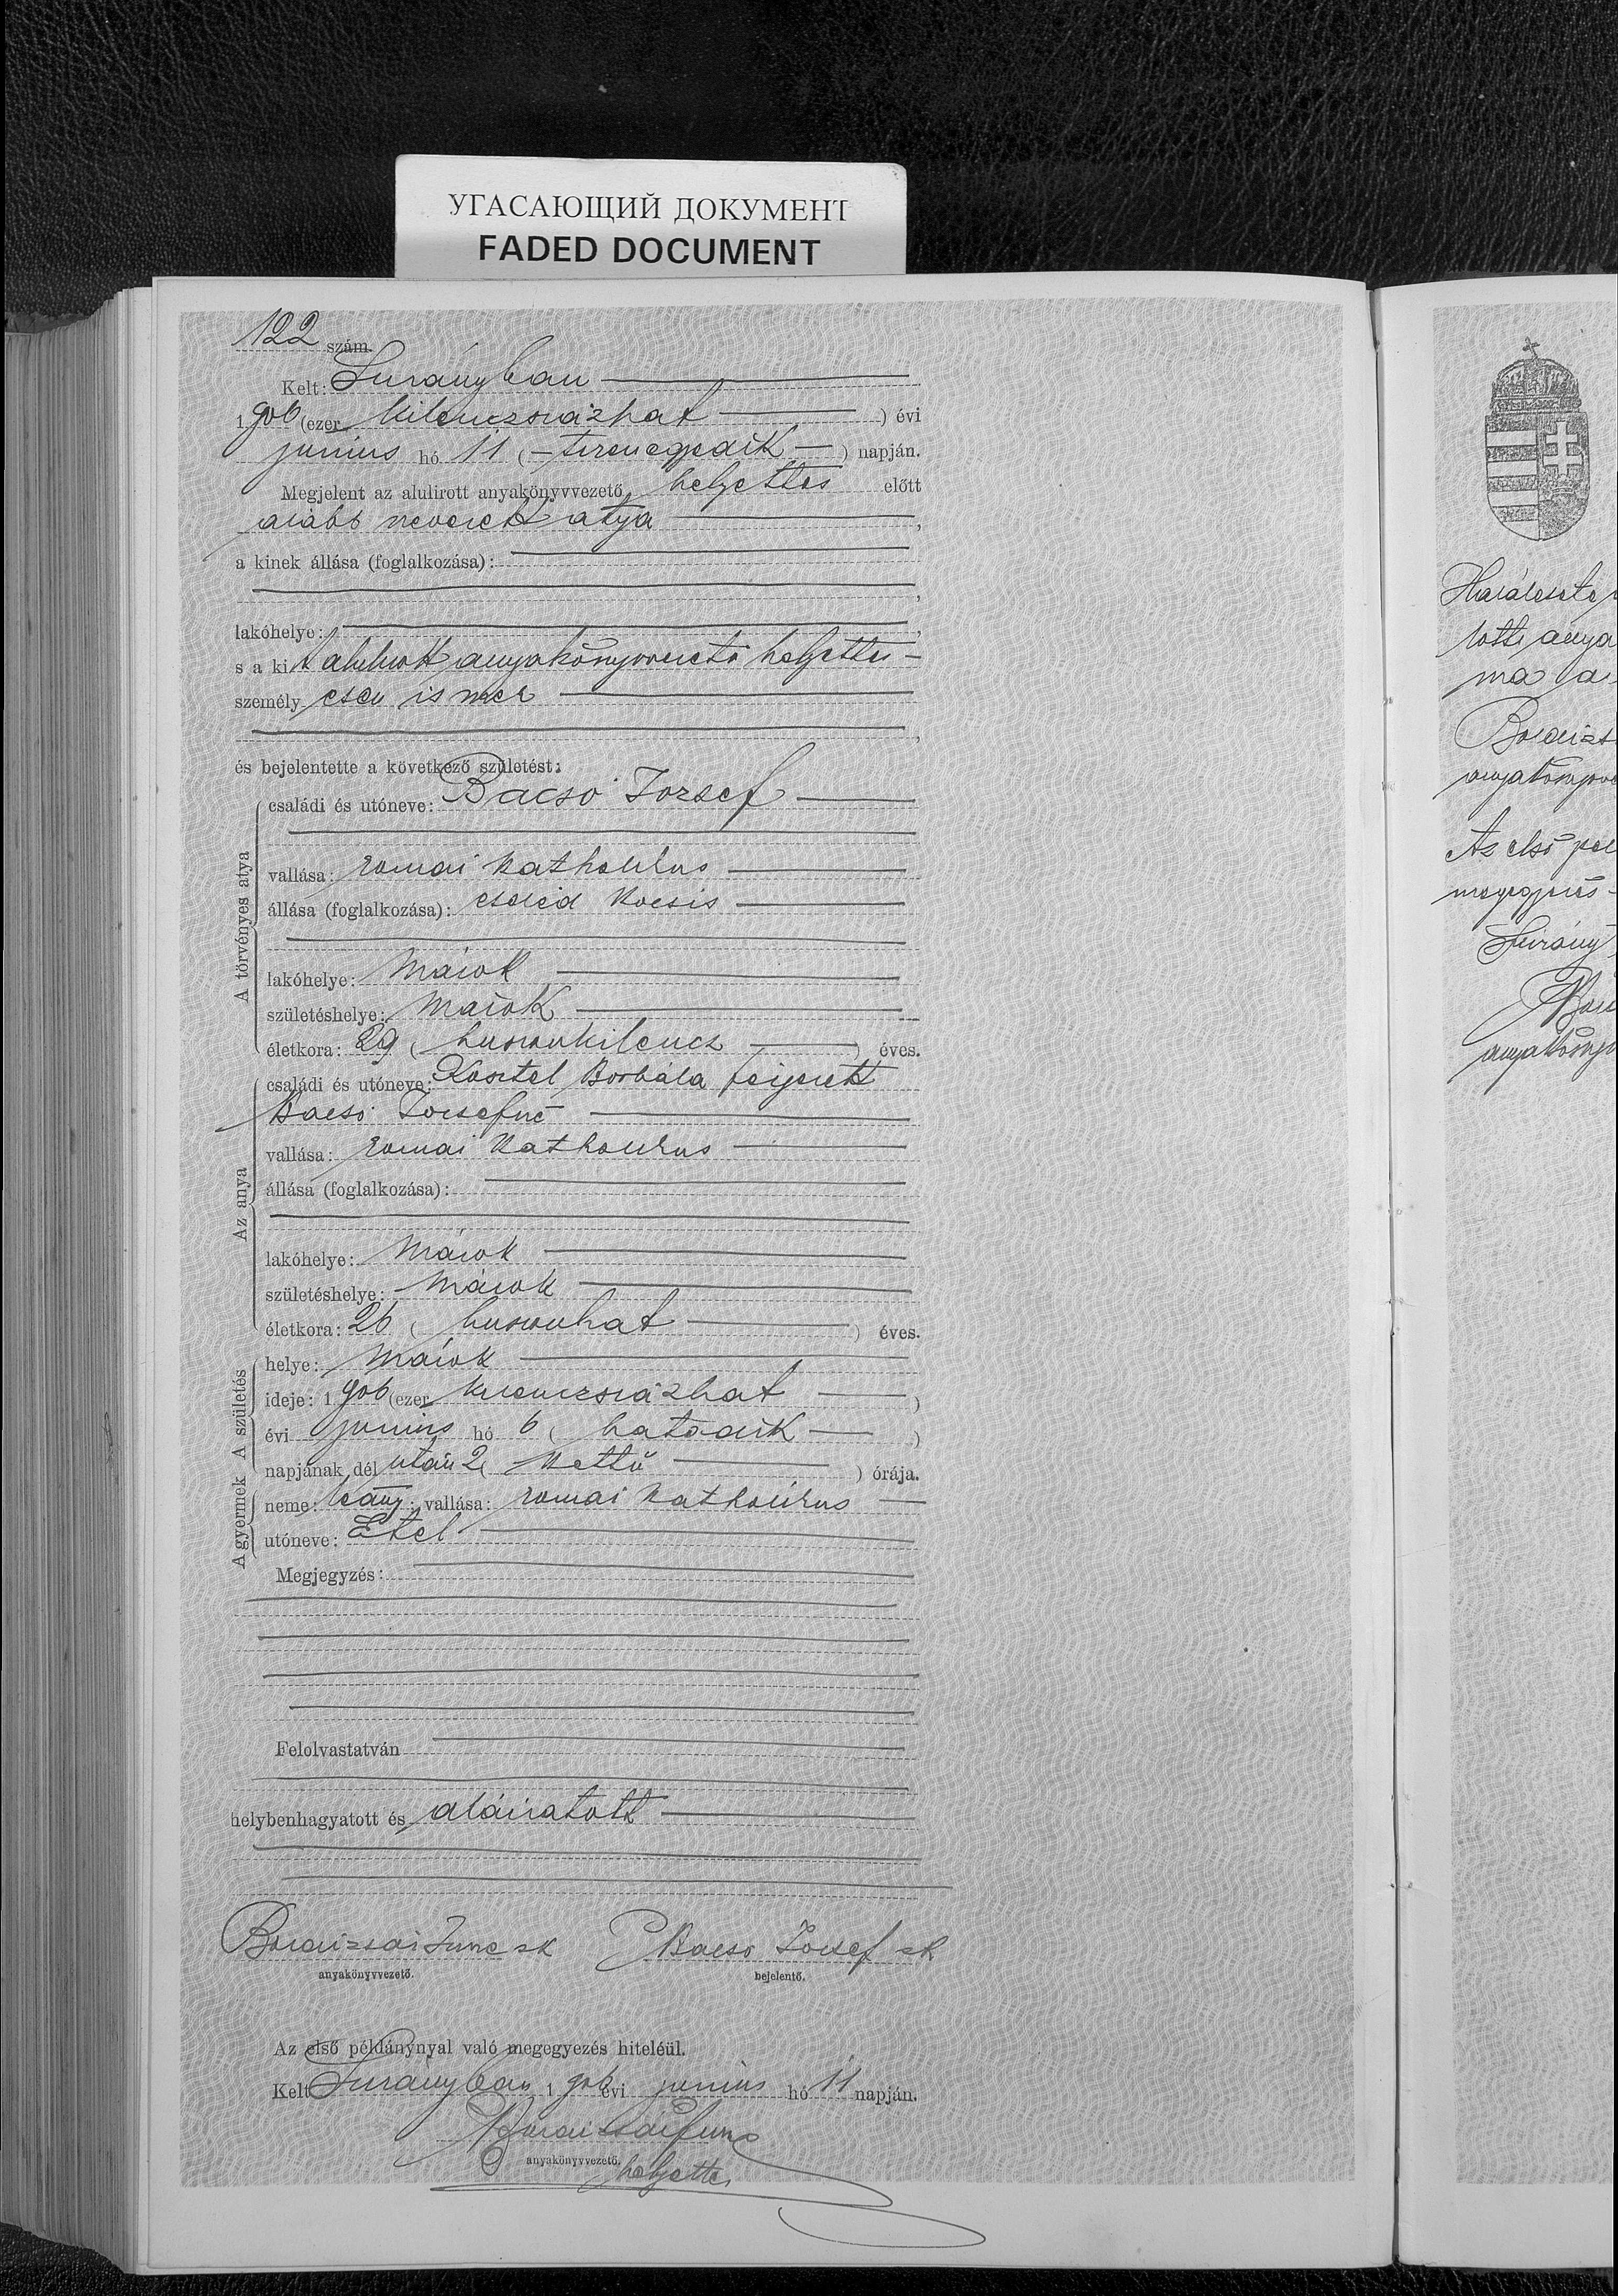 УГАСАЮЩИЙ ДОКУМЕНТ
FADED DOCUMENT
122 szám.
Kelt: Surányban
1 906 (ezer kilenczszázhat ) évi
junius hó 11 ( tizenegyedik ) napján.
Megjelent az alulirott anyakönyvvezető helyettes előtt
alább nevezett atya ,
a kinek állása (foglalkozása):
,
lakóhelye: ,
s a kit alulirott anyakönyvvezető helyettes
személy esen ismer
,
és bejelentette a következő születést:
A törvényes atya
családi és utóneve: Bacsó József
vallása: romai katholikus
állása (foglalkozása): cseléd kocsis
lakóhelye: Márok
születéshelye: Márok
életkora: 29 ( huszonkilencz ) éves.
Az anya
családi és utóneve: Borbála férjezett
Bacsó Józsefné
vallása: romai katholikus
állása (foglalkozása):
lakóhelye: Márok
születéshelye: Márok
életkora: 26 ( huszonhat ) éves.
A születés
helye: Márok
ideje: 1 906 (ezer kilenczszázhat )
évi junius hó 6 ( hatodik )
napjának dél után 2 ( kettő ) órája.
A gyermek
neme: leány; vallása: romai katholikus
utóneve: Etel
Megjegyzés:
Felolvastatván
helybenhagyatott és aláiratott
sk Bacsó József sk
anyakönyvvezető. bejelentő.
Az első példánynyal való megegyezés hiteléül.
Kelt Surányban, 1 906 évi junius hó 11 napján.
anyakönyvvezető.
helyettes
anya
ma a
Az első pél
megegyezés
Surány